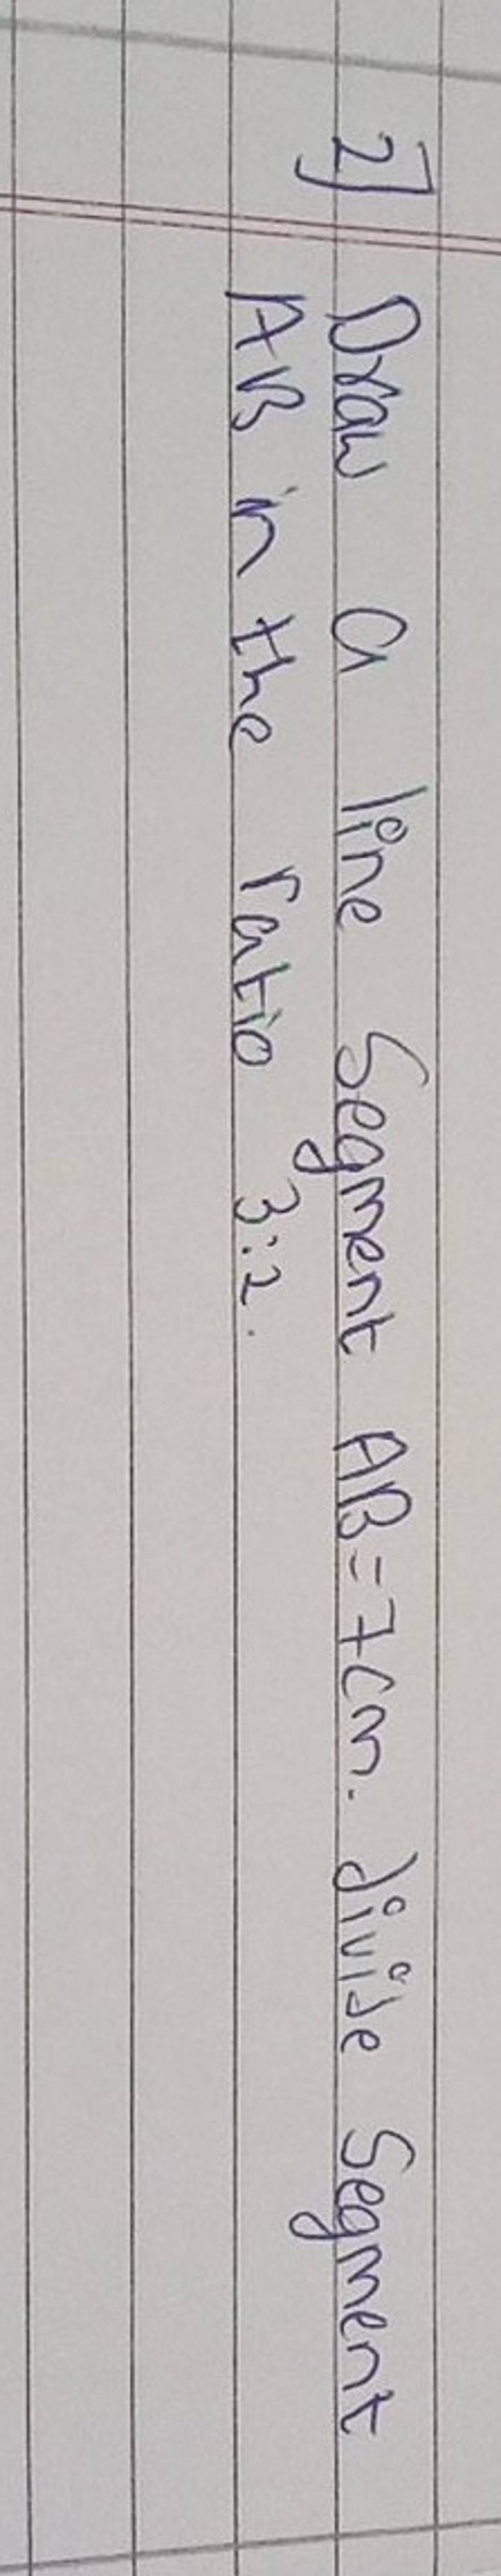 2] Draw a line Segment AB=7cm. divide Segment
AB in the ratio 3:2.